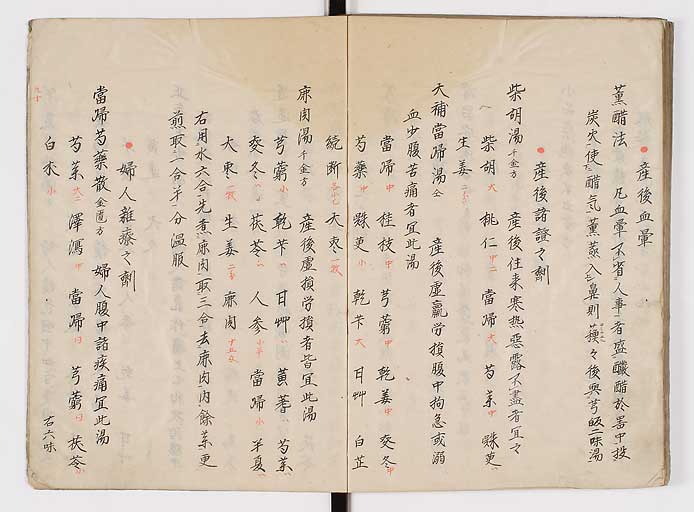 ●産後血暈
薫醋法 凡血暈不省人事者盛釅醋於器中投
炭火使醋気薫蒸入鼻則蘓々後與芎皈二味湯
●産後諸證之劑
柴胡湯 千金方 産後往来寒熱悪露不盡者宜之
柴胡 大 桃仁 中二 當歸 大 芍薬 中
生姜
大補當歸湯 仝 産後虚羸労損腹中拘急或溺
血少腹苦痛者宜此湯
當歸 中 桂枝 中 芎藭 中 乾姜 中 麦冬 中
芍薬 中 小 乾芐 大 甘艸 白芷
続断 大棗 一枚
麻肉湯 千金方 産後虚損労損者皆宜此湯
芎藭 小 乾芐 甘艸 黄蓍 芍薬
麦冬 茯苓 人参 小半 當歸 小 半夏
大棗 一枚 生姜 麻肉
右用水六合先煮麻肉取三合去麻肉内餘薬更
煎取二合半分温服
●婦人雑療之劑
當歸芍薬散 金匱方 婦人腹中諸疾痛宜此湯
芍薬 大二 澤瀉 中 當歸 芎藭 茯苓 小
白朮 小 右六味